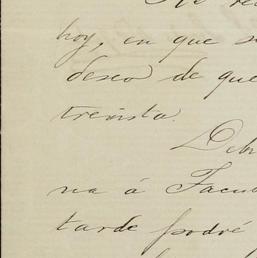 hoy, en que
deseo de que
trevista.
na á Tacub
tarde podré